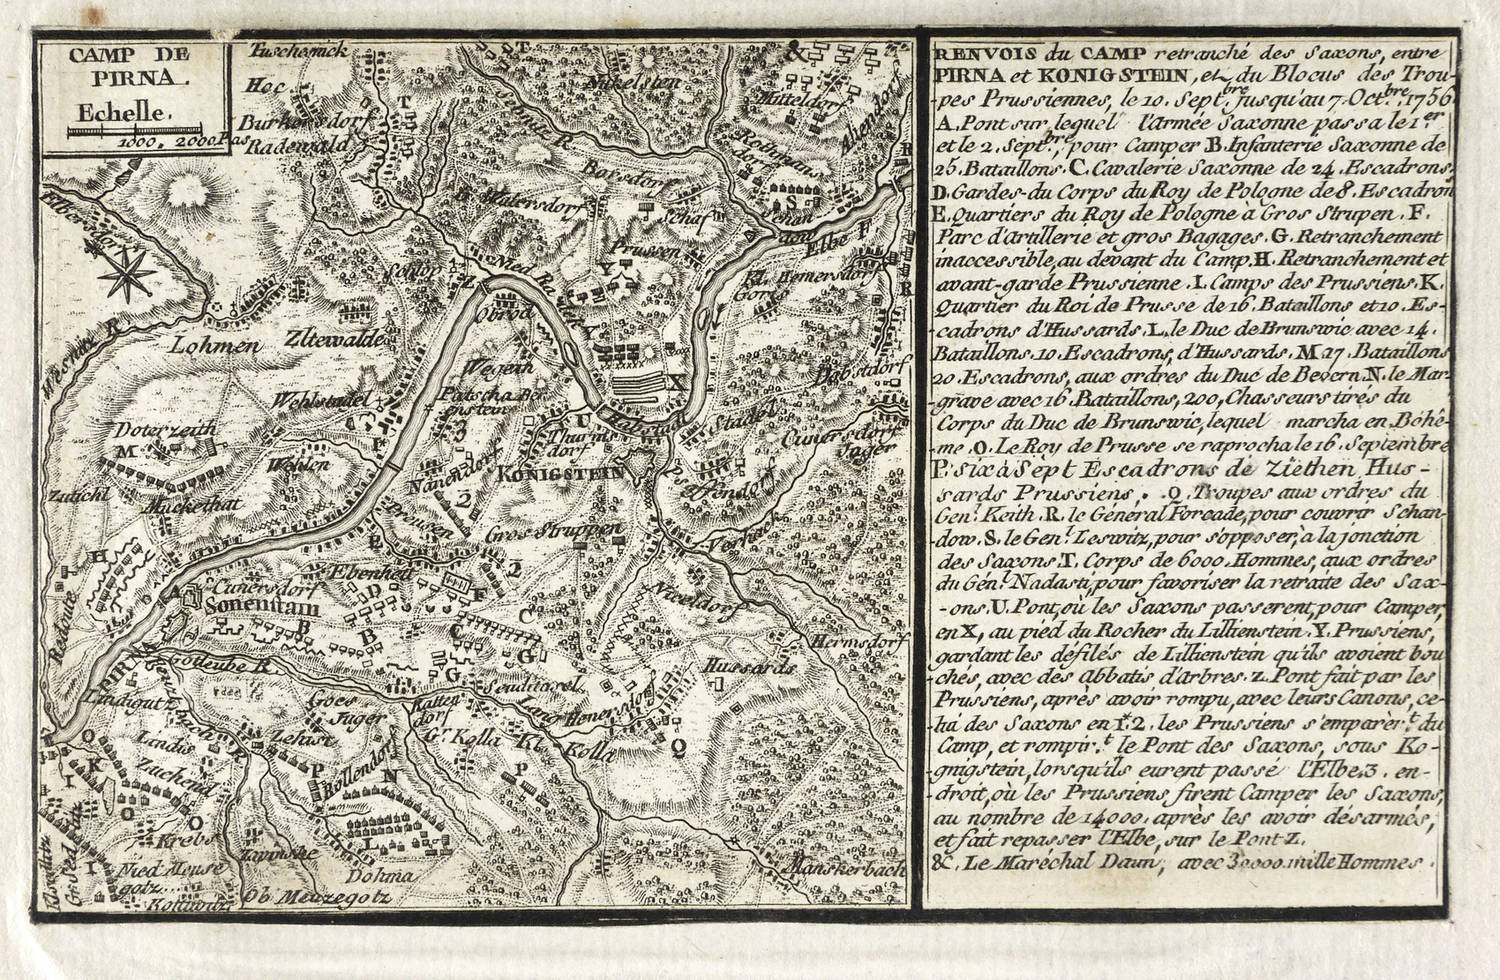 CAMP DE
PIRNA.
Echelle.
1000. 2000 Pas
Hoc
Burkersdorf
Radewald
T
T
&
Mitteldorf
Altendorf
Rothmans
dorf
S
Schan
dow
Elbe F
R
R
Watersdorf
Schaf
Prussen
Y
Z
Obrod
Wegem
Lohmen
Zltewalde
Wehlstadel
Doterzeith
M
Wehlen
Muckethat
Zatichl
H
Redoute
Patscha Ber
enstein
3
Nanendorf
2
Preusen
E
Thurms
dorf
U
KÖNIGSTEIN
X
Stadel
Cunersdorf
Jager
Gros Struppen
2
Verhack
Niceldorf
Hermsdorf
Hussards
A
Cunersdorf
Sonenstain
Ebenheit
D
F
B
B
C
C
G
G
PIRNA
Gotleube R.
Goes
Jager
Ratten
dorf
Gr. Kolla
Kl. Kolla
Lang Henersdorf
Q
Q
K
I
I
O
O
Lindis
Zuchend
Lehist
P
P
N
Rollendorf
L
Dohma
Krebs
Nied Meuse
gotz
Ob Meuzegotz
Manskerbach
RENVOIS du CAMP retranché des Saxons, entre
PIRNA et KONIGSTEIN, et du Blocus des Trou-
-pes Prussiennes, le 10. Septbre. jusqu'au 7. Octbre. 1756
A. Pont sur lequel l'armée Saxonne passa le 1er
et le 2. Septbr., pour Camper B. Infanterie Saxonne de
25. Bataillons. C. Cavalerie Saxonne de 24. Escadrons.
D. Gardes-du Corps du Roy de Pologne de 8. Escadron
E. Quartiers du Roy de Pologne à Gros Strupen. F.
Parc d'artillerie et gros Bagages. G. Retranchement
inaccessible, au devant du Camp. H. Retranchement et
avant-garde Prussienne. I. Camps des Prussiens. K.
Quartier du Roi de Prusse de 16. Bataillons et 10. Es-
-cadrons d'Hussards. L. le Duc de Brunswic avec 14.
Bataillons. 10. Escadrons, d'Hussards. M 27. Bataillons
20. Escadrons, aux ordres du Duc de Bevern. N. le Mar-
-grave avec 16. Bataillons, 200, Chasseurs tirés du
Corps du Duc de Brunswic, lequel marcha en Bôhê-
-me. O. Le Roy de Prusse se raprocha le 16. Septembre
P. six à Sept Escadrons de Ziethen Hus-
-sards Prussiens. Q. Troupes aux ordres du
Gen. Keith. R. le Général Forcade, pour couvrir Schan-
-dow. S. le Gen. Leswitz, pour s'opposer, à la jonction
des Saxons. T. Corps de 6000. Hommes, aux ordres
du Gén. Nadasti, pour favoriser la retraite des Sax-
-ons. U. Pont, où les Saxons passerent, pour Camper,
en X, au pied du Rocher du Lillienstein. Y. Prussiens,
gardant les défilés de Lillienstein qu'ils avoient bou
chés, avec des abbatis d'arbres. Z. Pont fait par les
Prussiens, après avoir rompu, avec leurs Canons, ce-
-lui des Saxons en 1. 2. les Prussiens s'emparèr.t du
Camp, et rompir.t le Pont des Saxons, sous Ko-
-gnigstein, lorsqu'ils eurent passé l'Elbe. 3. en-
-droit, où les Prussiens firent Camper les Saxons,
au nombre de 14000. après les avoir désarmés,
et fait repasser l'Elbe, sur le Pont Z.
&. Le Maréchal Daun, avec 30000. mille Hommes.